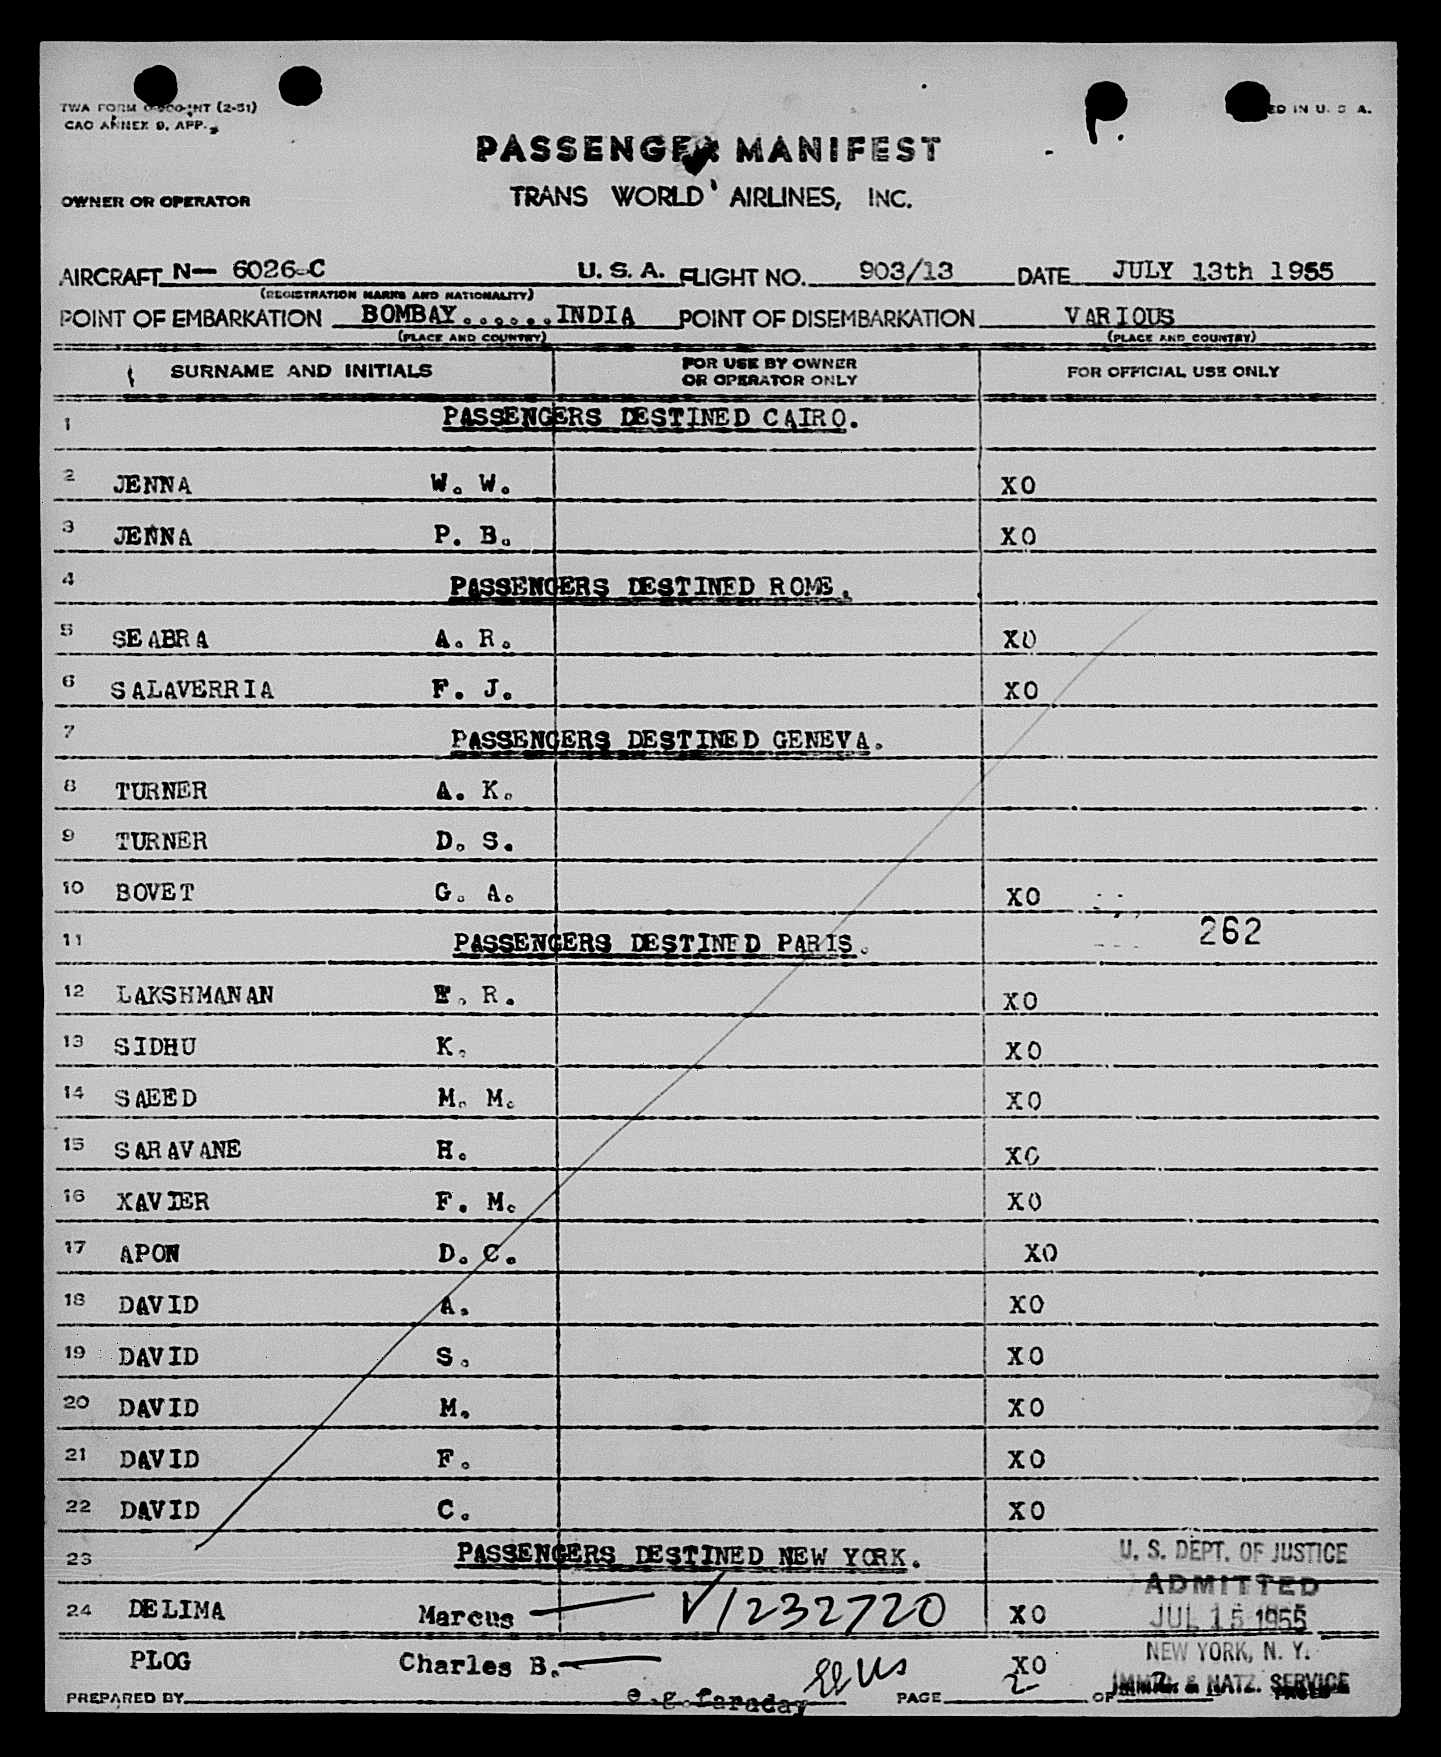 TWA FORM (2-51)
ICAO ANNEX 9, APP.
ED IN U. S. A.
PASSENGER MANIFEST
OWNER OR OPERATOR TRANS WORLD AIRLINES, INC.
AIRCRAFT N— 6026-C U. S. A. FLIGHT NO. 903/13 DATE JULY 13th 1955
(REGISTRATION MARKS AND NATIONALITY)
POINT OF EMBARKATION BOMBAY......INDIA POINT OF DISEMBARKATION VARIOUS
(PLACE AND COUNTRY) (PLACE AND COUNTRY)
SURNAME AND INITIALS FOR USE BY OWNER OR OPERATOR ONLY FOR OFFICIAL USE ONLY
1 PASSENGERS DESTINED CAIRO.
2 JENNA W. W. XO
3 JENNA P. B. XO
4 PASSENGERS DESTINED ROME.
5 SEABRA A. R. XO
6 SALAVERRIA F. J. XO
7 PASSENGERS DESTINED GENEVA.
8 TURNER A. K.
9 TURNER D. S.
10 BOVET G. A. XO
11 PASSENGERS DESTINED PARIS. 262
12 LAKSHMANAN R. XO
13 SIDHU K. XO
14 SAEED M. M. XO
15 SARAVANE H. XO
16 XAVIER F. M. XO
17 APON D. C. XO
18 DAVID A. XO
19 DAVID S. XO
20 DAVID M. XO
21 DAVID F. XO
22 DAVID C. XO
23 PASSENGERS DESTINED NEW YORK.
U. S. DEPT. OF JUSTICE
ADMITTED
24 DELIMA Marcus — V1232720 XO JUL 15 1955
NEW YORK, N. Y.
PLOG Charles B. — USUS XO
IMMIG. & NATZ. SERVICE
PREPARED BY e.g.faraday PAGE 2 OF 2 PAGES